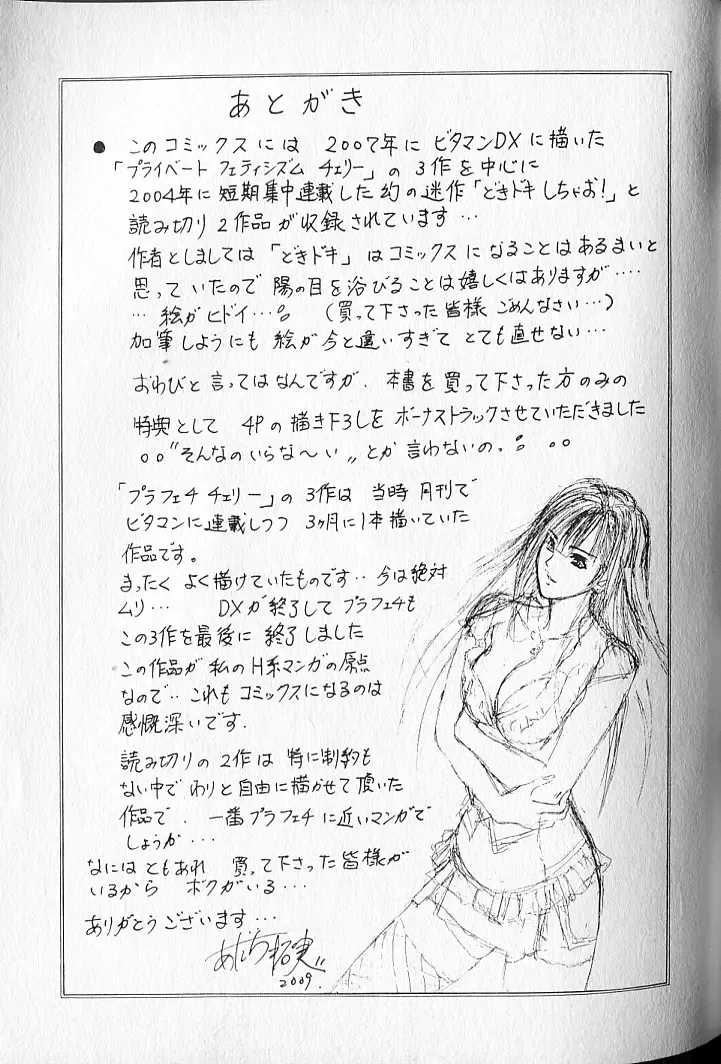 あとがき
● このコミックスには 2007年に ビタマンDXに描いた
「プライベート フェティシズム チェリー」の 3作を中心に
2004年に短期集中連載した約の迷作「どきドキしちゃお!」と
読み切り2作品が収録されています…
作者としましては「どきドキ」はコミックスになることはあるまいと
思っていたので 陽の目を浴びることは嬉しくはありますが‥‥
… 絵がヒドイ… (買って下さった皆様 ごめんなさい…)
加筆しようにも 絵が今と違いすぎて とても直せない…
おわびと言ってはなんですが、本書を買って下さった方のみの
特典として 4Pの描き下3しを ボーナストラックさせていただきました
。。"そんなのいらな〜い〃とか 言わないの。 。。
「プラフェチ チェリー」の 3作は 当時 月刊で
ビタマンに連載しつつ 3ヶ月に1本描いていた
作品です。
まったく よく描けていたものです‥ 今は絶対
ムリ… DXが終了して プラフェチも
この3作を最後に 終了しました
この作品が 私のH系マンガの原点
なので‥ これも コミックスになるのは
感慨深いです.
読み切りの 2作は 特に制約も
ない中で わりと自由に描かせて頂いた
作品で、一番プラフェチに近いマンガで
しょうか…
なにはともあれ 買って下さった皆様が
いるから ボクがいる…
ありがとうございます…
2009.